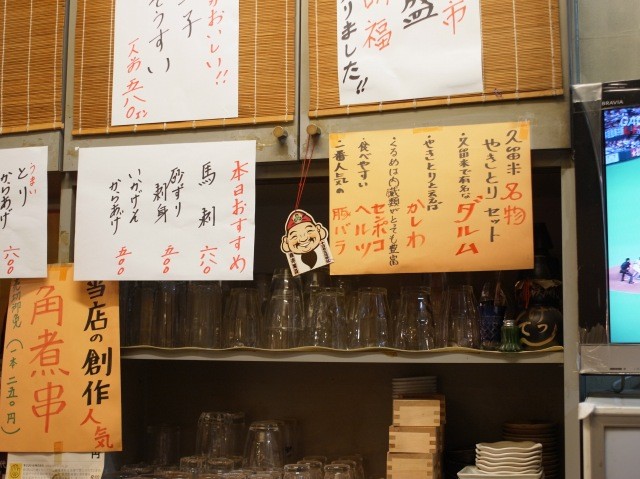 がおいしい!!
子
ぞうすい
一人前 五八〇円
市
盛
福
りました!!
うまい
とり
からあげ
六〇〇
本日おすすめ
馬刺 六〇〇
砂ずり刺身 五〇〇
いかげそからあげ 五〇〇
久留米名物
やきとりセット
・久留米で有名な ダルム
・やきとりと言えば かしわ
・くるめは内臓類がとても豊富 センポコ ヘルツ
・食べやすい
一番人気の 豚バラ
当店の創作
人気
角煮串
(一本 二五〇円)
BRAVIA